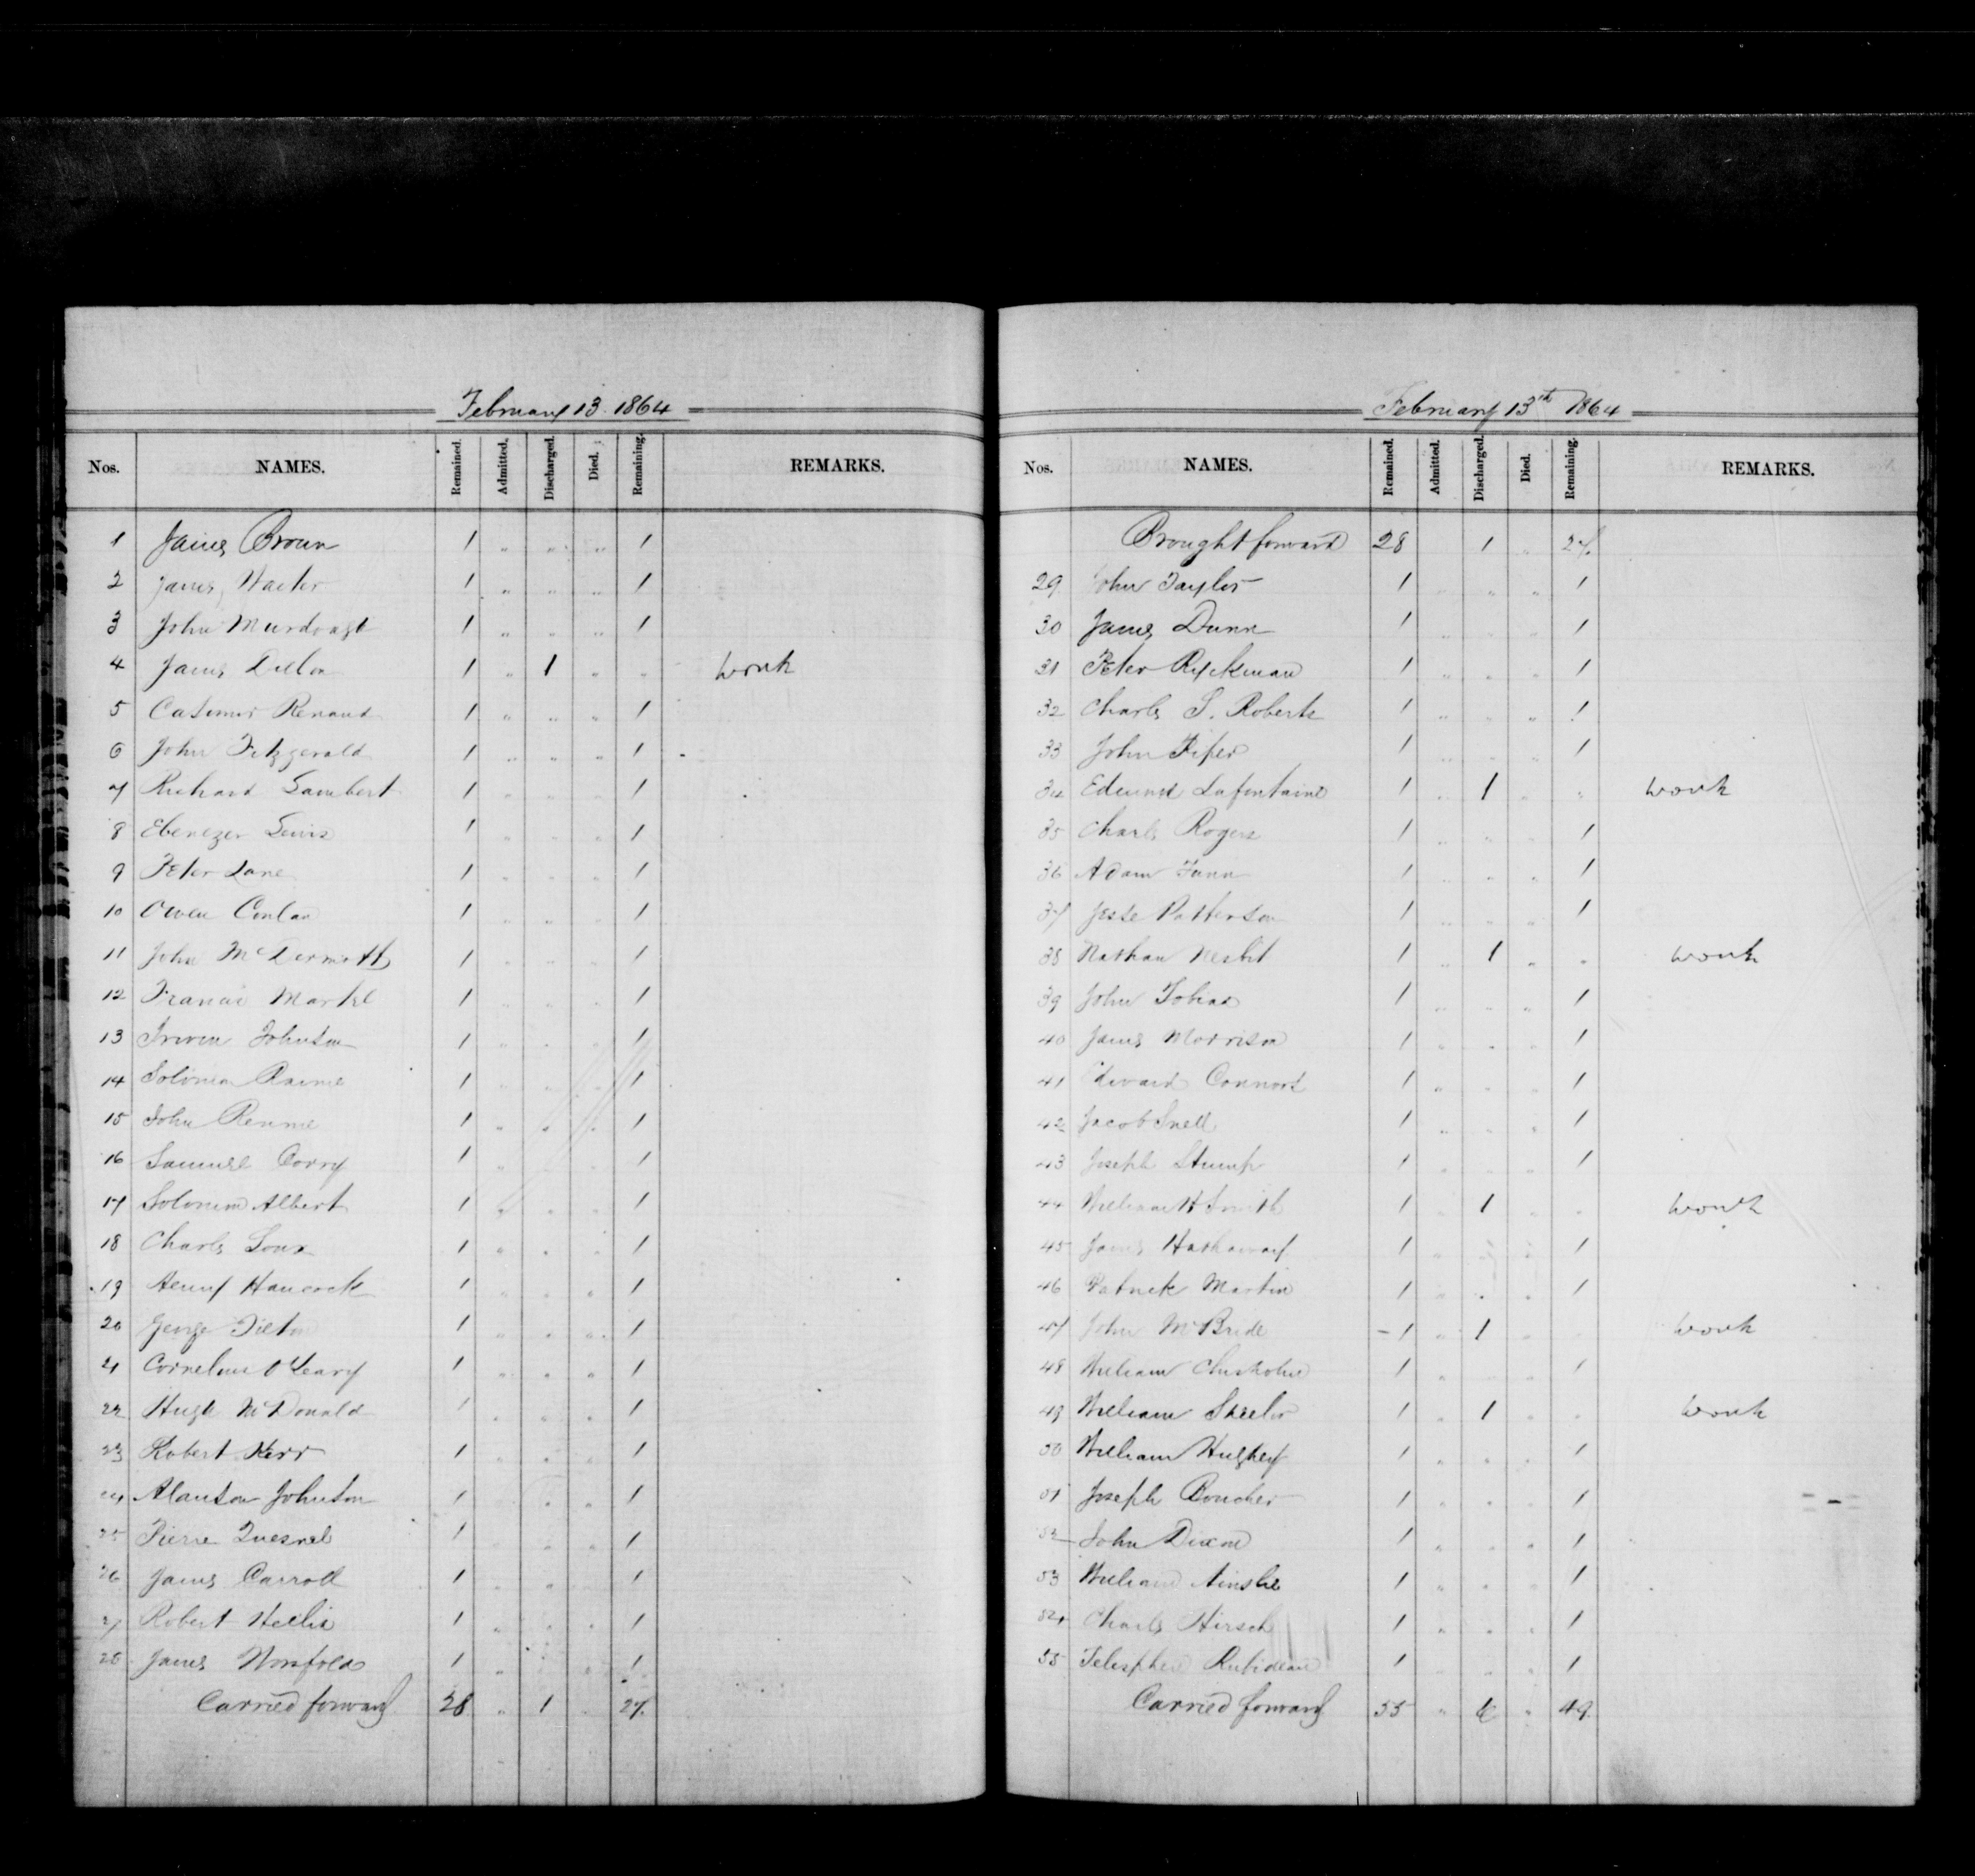 February 13. 1864
Nos. NAMES. Remained. Admitted. Discharged. Died. Remaining. REMARKS.
1 James Brown 1 " " " 1
2 James 1 " " " 1
3 John 1 " " " 1
4 James Dillon 1 " 1 " " work
5 Casimir Renaud 1 " " " 1
6 John Fitzgerald 1 " " " 1
7 Richard Lambert 1 " " " 1
8 Ebenezer Lewis 1 " " " 1
9 Peter Lane 1 " " " 1
10 Owen Conlan 1 " " " 1
11 John McDermott 1 " " " 1
12 1 " " " 1
13 Irwin Johnson 1 " " " 1
14 1 " " " 1
15 John 1 " " " 1
16 Samuel Corry 1 " " " 1
17 Solomon Albert 1 " " " 1
18 Charles 1 " " " 1
19 Henry Hancock 1 " " " 1
20 George 1 " " " 1
21 Cornelius O'Leary 1 " " " 1
22 Hugh McDonald 1 " " " 1
23 Robert Kerr 1 " " " 1
24 Alanson Johnson 1 " " " 1
25 Pierre Quesnel 1 " " " 1
26 James Carroll 1 " " " 1
27 Robert 1 " " " 1
28 James Worsfold 1 " " " 1
Carried forward 28 " 1 " 27
February 13th 1864
Nos. NAMES. Remained. Admitted. Discharged. Died. Remaining. REMARKS.
Brought forward 28 1 " 27
29 John Taylor 1 " " " 1
30 James Dunn 1 " " " 1
31 Peter Ryckman 1 " " " 1
32 Charles S. Roberts 1 " " " 1
33 John 1 " " " 1
34 Edmund Lafontaine 1 " 1 " " work
35 Charles Rogers 1 " " " 1
36 Adam 1 " " " 1
37 Jesse Patterson 1 " " " 1
38 Nathan Nesbit 1 " 1 " " work
39 John Tobias 1 " " " 1
40 James Morrison 1 " " " 1
41 Edward Connors 1 " " " 1
42 Jacob Snell 1 " " " 1
43 Joseph Stump 1 " " " 1
44 William H Smith 1 " 1 " " work
45 James Hathaway 1 " " " 1
46 Patrick Martin 1 " " " 1
47 John McBride 1 " 1 " " work
48 William Chisholm 1 " " " 1
49 William 1 " 1 " " work
50 William Hughey 1 " " " 1
51 Joseph Boucher 1 " " " 1
52 John Dixon 1 " " " 1
53 William Ainslie 1 " " " 1
54 Charles Hirsch 1 " " " 1
55 Telesphere Rubideau 1 " " " 1
Carried forward 55 " 6 " 49